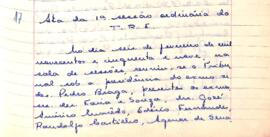 17
Ata da 1ª sessão ordinária do
T. R. E.
No dia seis de fevereiro de mil
novecentos e cinquenta e nove, na
sala de sessões, reuniu-se o Tribu
nal sob a presidência do exmo. sr.
des. Pedro Braga, presentes os exmos.
srs. des. Faria e Souza, drs. José
Américo Macêdo, Fernandes,
Randolfo Aguiar de Sena